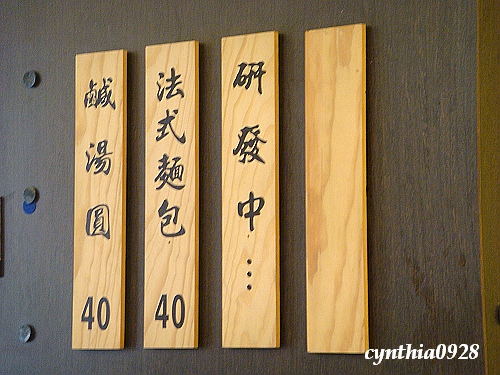 鹹湯圓 40
法式麵包 40
研發中...
cynthia0928